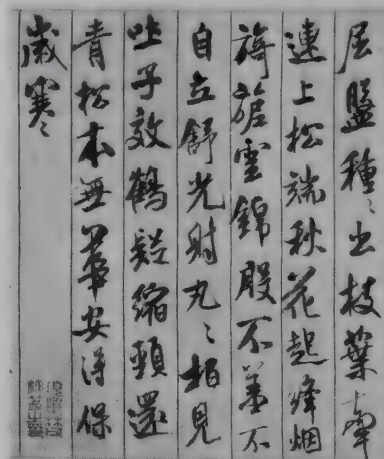 屈盤種〻出枝葉牽
連上松端秋花起絳烟
旖旎雲錦殷不羞不
自立舒光射丸〻柏見
吐子效鶴疑縮頸還
青松本無華安得保
歲寒